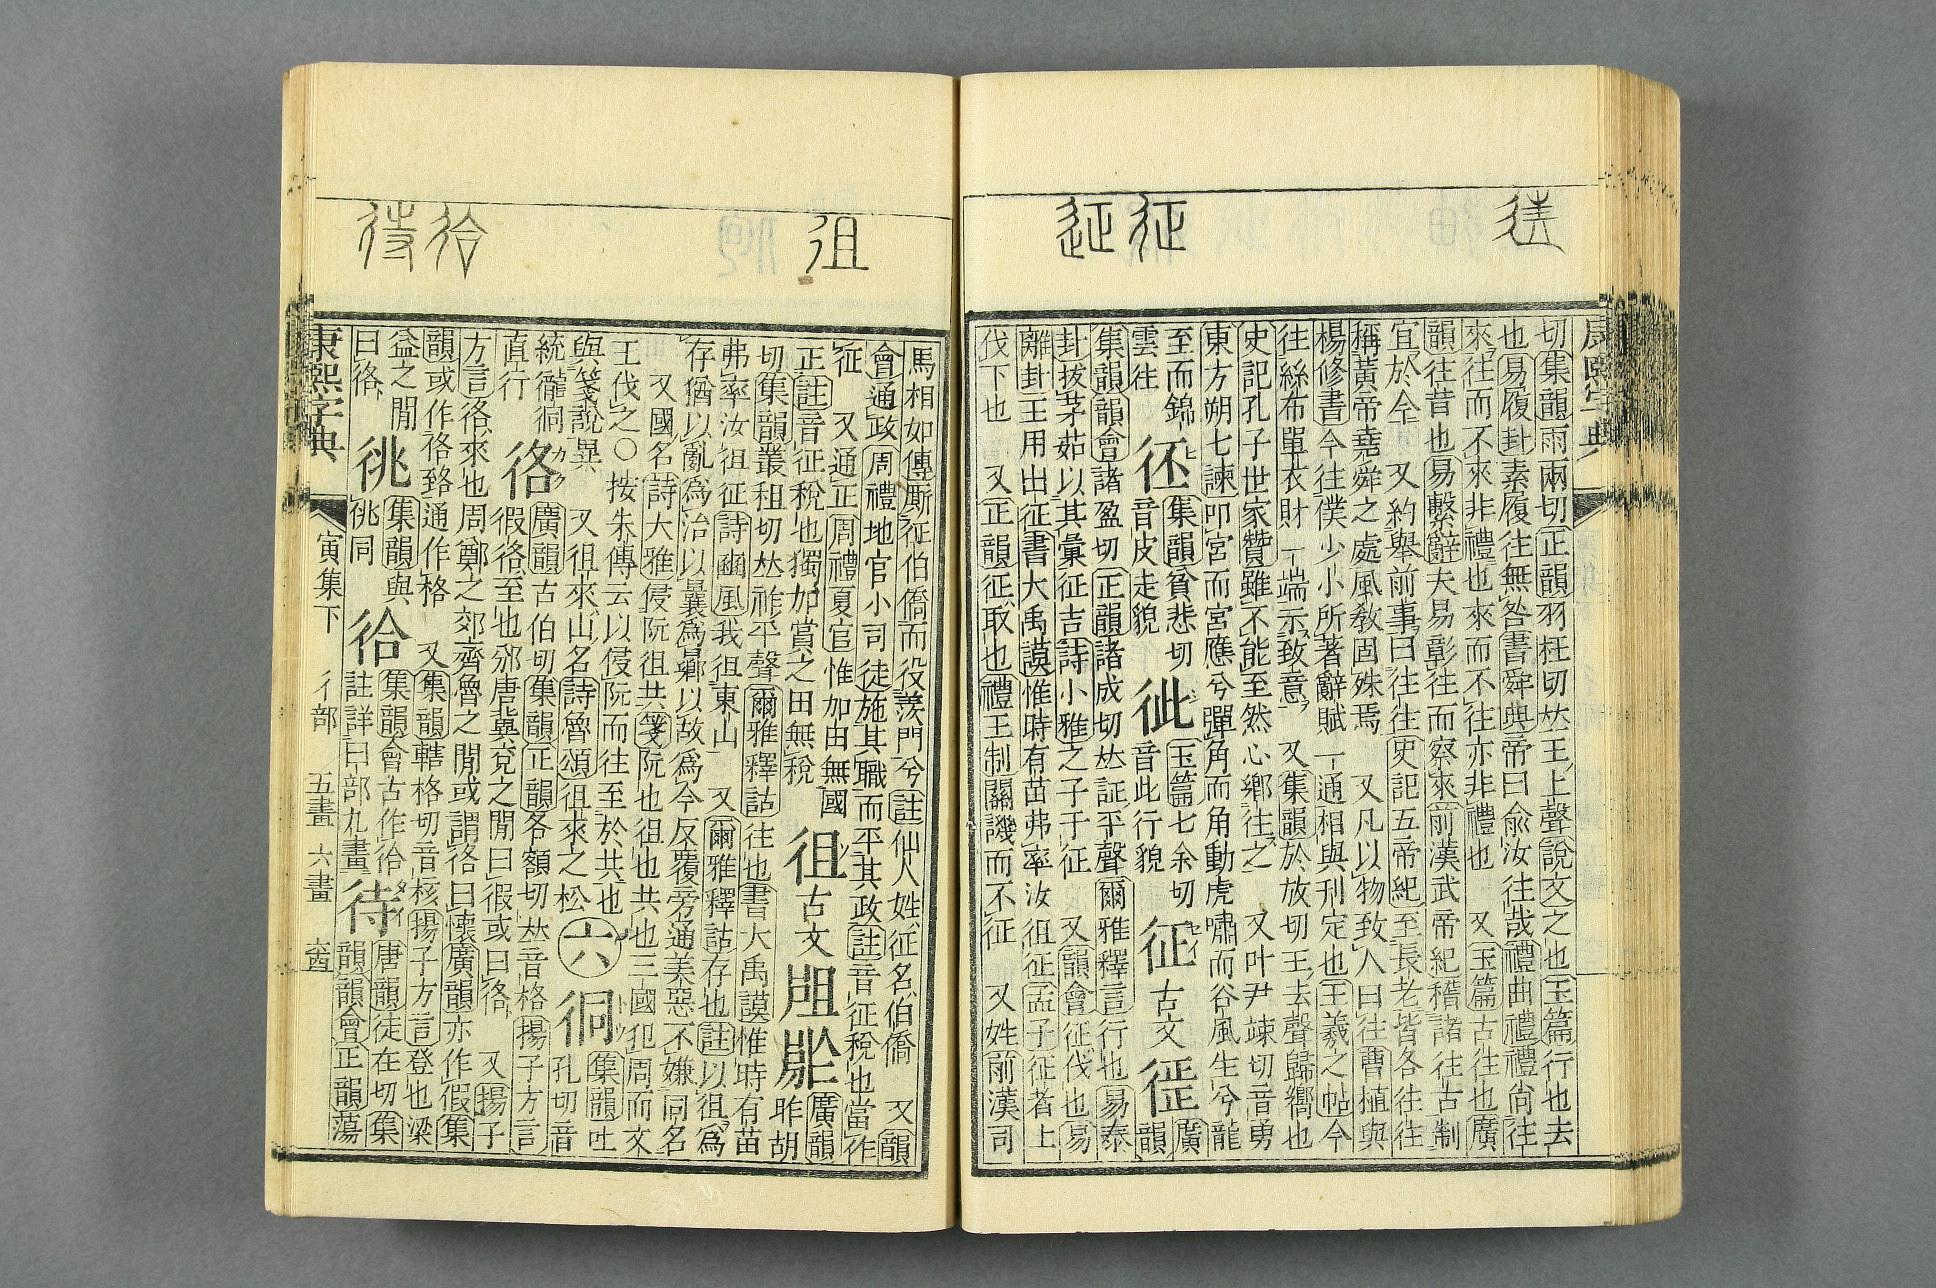 徃
征
延
康熙字典
切集韻雨兩切正韻羽枉切𠀤王上聲說文之也玉篇行也去
也易履卦素履往無咎書舜典帝曰兪汝往哉禮曲禮禮尚往
來往而不來非禮也來而不往亦非禮也 又玉篇古往也廣
韻往昔也易繫辭夫易彰往而察來前漢武帝紀稽諸往古制
宜於今 又約舉前事曰往往史記五帝紀至長老皆各往往
稱黃帝堯舜之處風敎固殊焉 又凡以物致人曰往曹植與
楊修書今往僕少小所著辭賦一通相與刊定也王羲之帖今
往絲布單衣財一端示致意 又集韻於放切王去聲歸嚮也
史記孔子世家贊雖不能至然心鄕往之 又叶尹竦切音勇
東方朔七諫叩宮而宮應兮彈角而角動虎嘯而谷風生兮龍
至而錦
雲往
集韻貧悲切
音皮走貌
玉篇七余切
音此行貌
征 古文 徰
廣
韻
集韻韻會諸盈切正韻諸成切𠀤証平聲爾雅釋言行也易泰
卦拔茅茹以其彙征吉詩小雅之子于征 又韻會征伐也易
離卦王用出征書大禹謨惟時有苗弗率汝徂征孟子征者上
伐下也 又正韻征取也禮王制關譏而不征 又姓前漢司
徂
徍
待
馬相如傳厮征伯僑而役羨門兮註仙人姓征名伯僑 又韻
會通政周禮地官小司徒施其職而平其政註音征稅也當作
征 又通正周禮夏官惟加田無國
正註音征稅也獨加賞之田無稅
徂 古文
廣韻
昨胡
切集韻叢租切𠀤祚平聲爾雅釋詁往也書大禹謨惟時有苗
弗率汝徂征詩豳風我徂東山 又爾雅釋詁存也註以徂爲
存猶以亂爲治以曩爲曏以故爲今反覆旁通美惡不嫌同名
又國名詩大雅侵阮徂共箋阮也徂也共也三國犯周而文
王伐之〇按朱傳云以侵阮而往至於共也
與箋說異 又徂來山名詩魯頌徂來之松
六
徊
集韻吐
孔切音
統𢕔徊
直行
㣟
廣韻古伯切集韻正韻各額切𠀤音格揚子方言
徦㣟至也邠唐冀兗之閒曰徦或曰㣟 又揚子
方言㣟來也周鄭之郊齊魯之閒或謂㣟曰懷廣韻亦作假集
韻或作㣟臵通作格 又集韻轄格切音核揚子方言登也梁
益之閒
曰㣟
集韻與
佻同
集韻會古作
註詳曰部九畫
待
唐韻徒在切集
韻韻會正韻蕩
康熙字典
寅集下
彳部 五畫 六畫